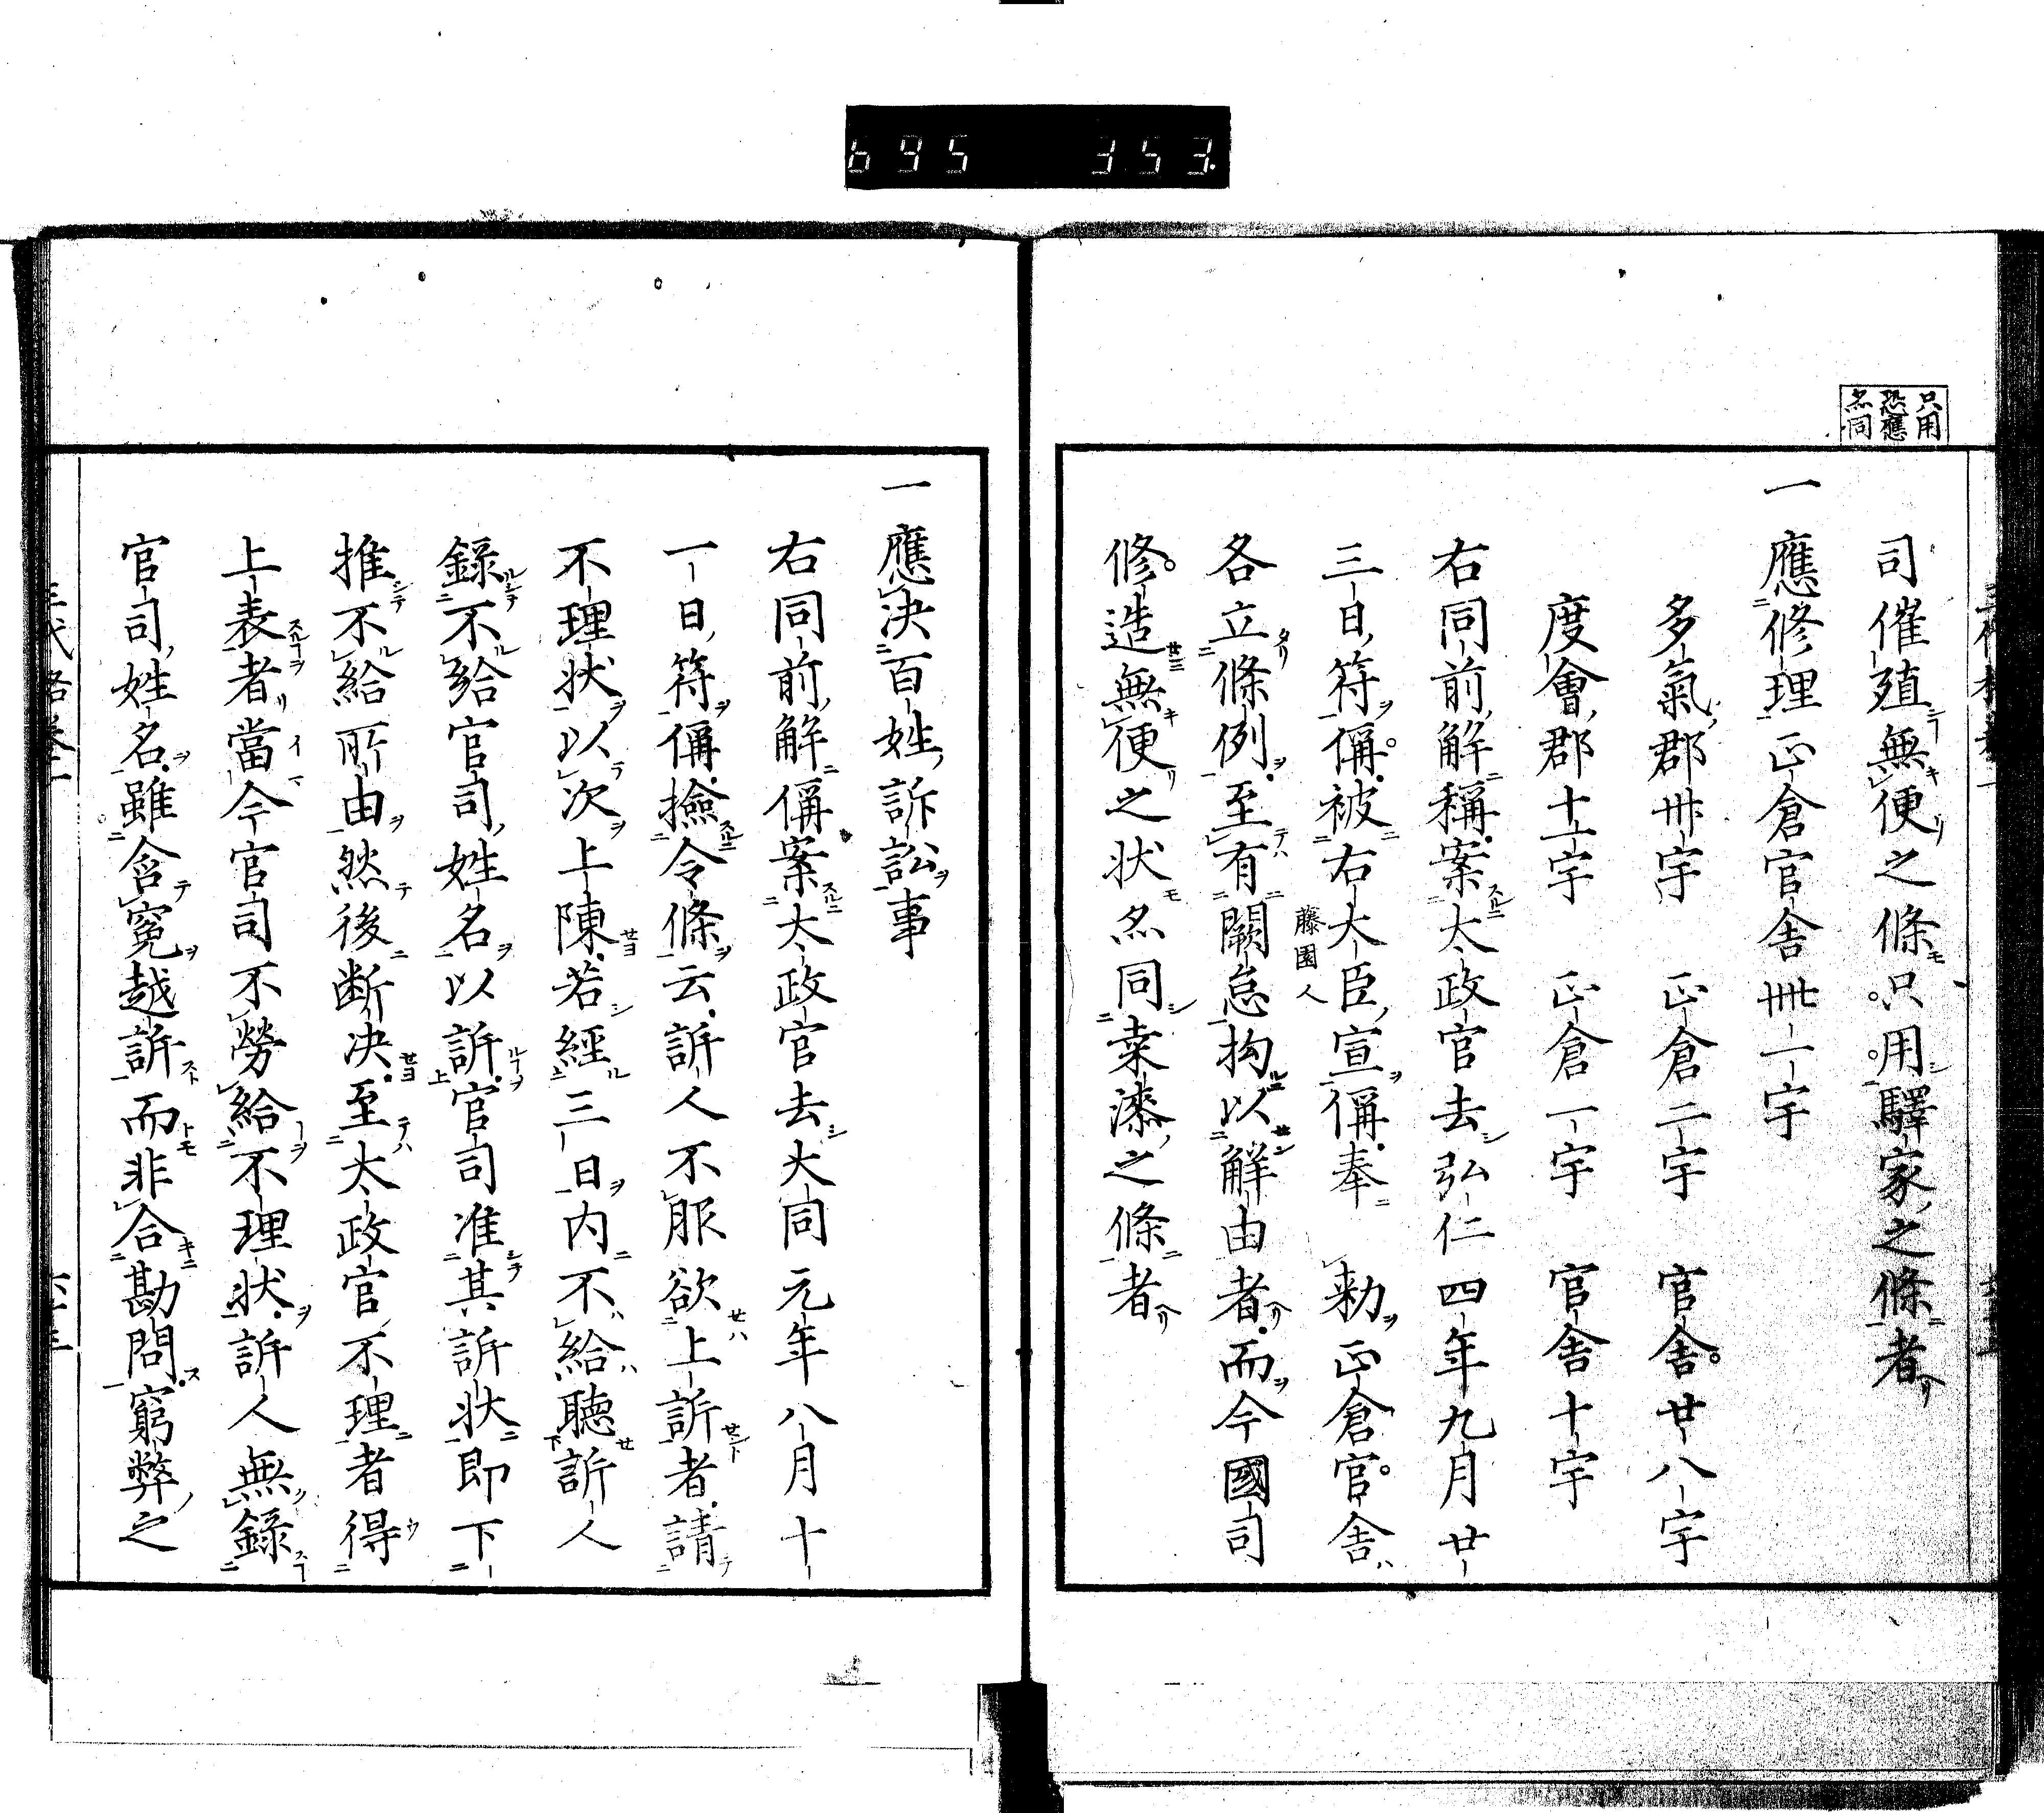 695 353
只用
恐應
点同
司催殖無便之條只用驛家之條者
一應修理正倉官舍卌一宇
多氣郡卅宇 正倉二宇 官舍廿八宇
度會郡十一宇 正倉一宇 官舍十宇
右同前解稱案太政官去弘仁四年九月廿
三日符偁被右大臣宣偁奉 勅正倉官舍
藤園人
各立條例至有闕怠拘以解由者而今國司
修造無便之状点同桒漆之條者
一應决百姓訴訟事
右同前解偁案太政官去大同元年八月十
一日符偁撿令條云訴人不服欲上訴者請
不理状以次上陳若經三日内不給聴訴人
録不給官司姓名以訴官司准其訴状即下
推不給所由然後断决至太政官不理者得
上表者當今官司不勞給不理状訴人無録
官司姓名雖含寃越訴而非合勘問窮弊之